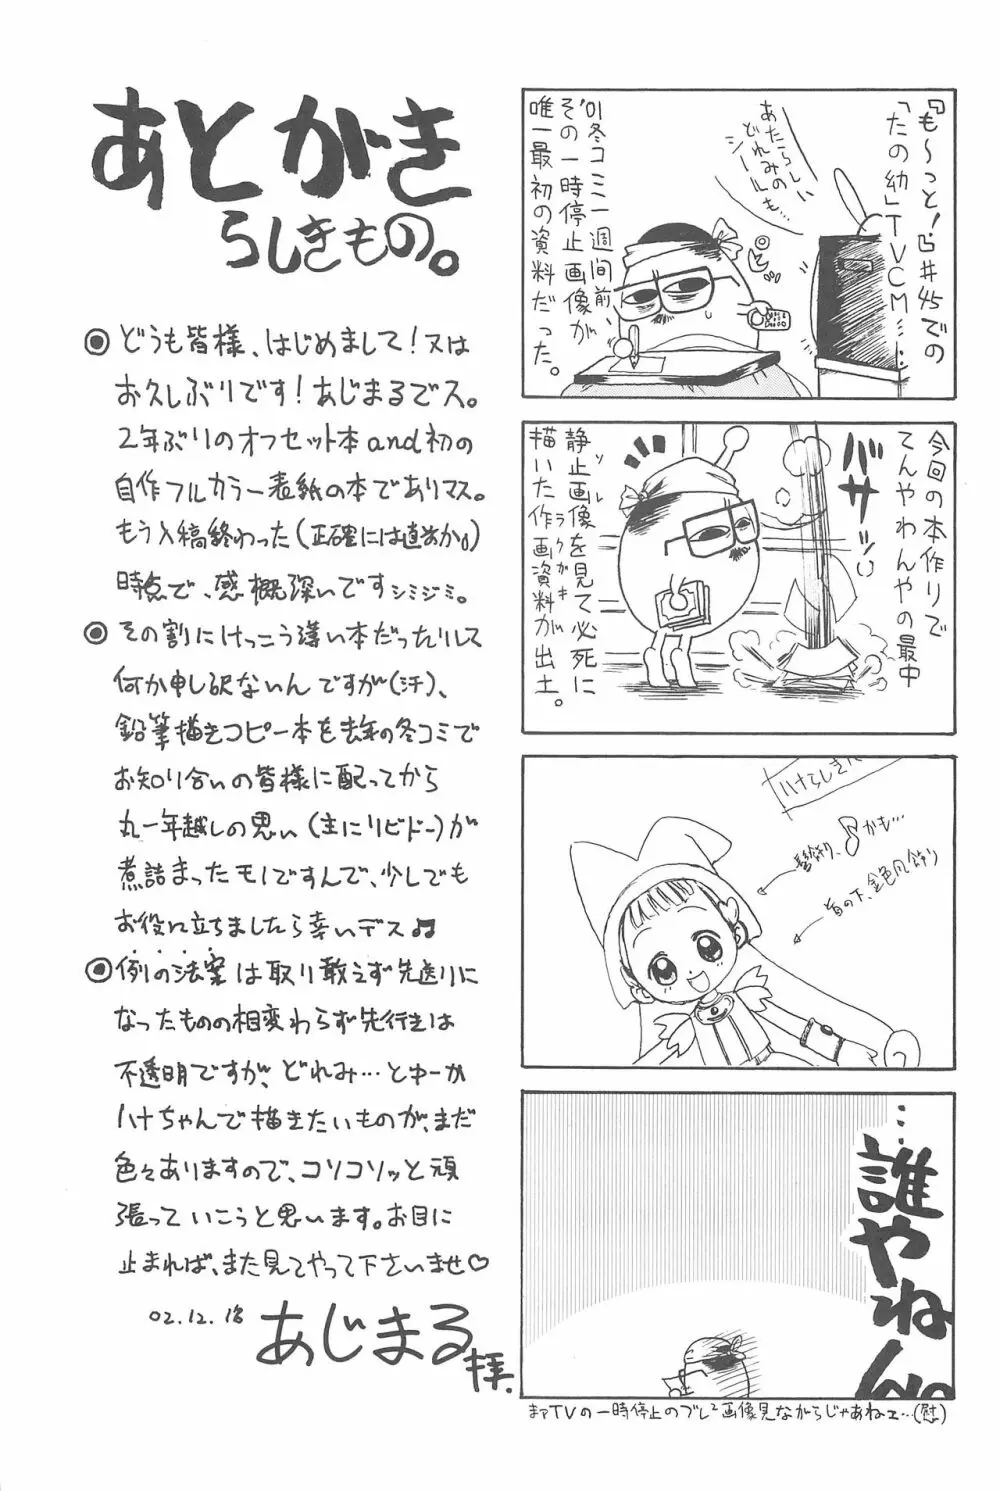 あとがき
らしきもの。
◎どうも皆様、はじめまして！又は
お久しぶりです！あじまるでス。
2年ぶりのオフセット本and初の
自作フルカラー表紙の本でありマス。
もう入稿終わった(正確には直前かo)
時点で、感慨深いですシミジミ。
◎その割にけっこう薄い本だったりして
何か申し訳ないんですが(汗)、
鉛筆描きコピー本を去年の冬コミで
お知り合いの皆様に配ってから
丸一年越しの思い(主にリビドー)が
煮詰まったモノですんで、少しでも
お役に立ちましたら幸いデス♫
◎例の法案は取り敢えず先送りに
なったものの相変わらず先行きは
不透明ですが、どれみ…とゆーか
ハナちゃんで描きたいものが、まだ
色々ありますので、コソコソッと頑
張っていこうと思います。お目に
止まれば、また見てやって下さいませ♡
02.12.18
あじまる拝.
『も〜っと！』#45での
「たの幼」TVCM……
あたらしい
どれみの
シールも…
'01冬コミ一週間前、
その一時停止画像が
唯一最初の資料だった。
今回の本作りで
てんやわんやの最中
バサッ
静止画像を見て必死に
描いた作画資料が出土。
ソレ
ラクガキ
ハナらしき
髪飾り、♪かも…
首の下、金色凡飾り
…誰やねん
まァTVの一時停止のブレ²画像見ながらじゃあねェ…(慰)